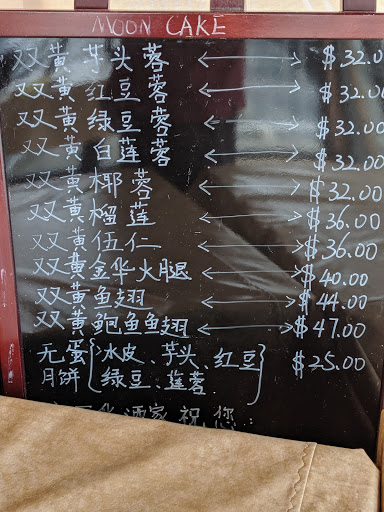 MOON CAKE
双黄芋头蓉 ↔ $32.0
双黄红豆蓉 ↔ $32.00
双黄绿豆蓉 ↔ $32.00
双黄白莲蓉 ↔ $32.00
双黄椰蓉 ↔ $32.00
双黄榴莲 ↔ $36.00
双黄伍仁 ↔ $36.00
双黄金华火腿 ↔ $40.00
双黄鱼翅 ↔ $44.00
双黄鲍鱼鱼翅 ↔ $47.00
无蛋月饼 { 冰皮、芋头、红豆 } $25.00
绿豆、莲蓉
酒家祝您: